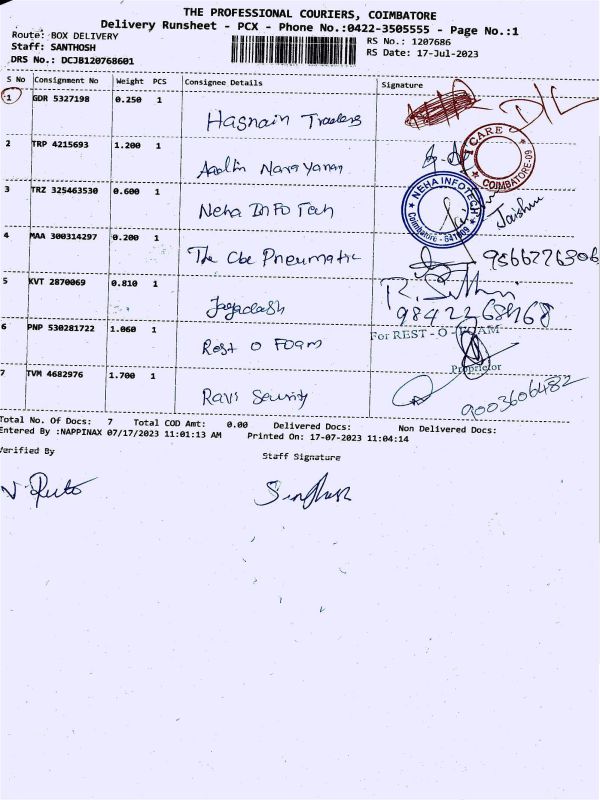 THE PROFESSIONAL COURIERS, COIMBATORE
Delivery Runsheet - PCX - Phone No.:0422-3505555 - Page No.:1
Route: BOX DELIVERY
RS No.: 1207686
Staff: SANTHOSH
RS Date: 17-Jul-2023
DRS No.: DCJB120768601
S No Consignment No Weight PCS Consignee Details Signature
1 GDR 5327198 0.250 1 Hasnain Traders D/L
2 TRP 4215693 1.200 1 Narayanan
I CARE COIMBATORE-09
3 TRZ 325463530 0.600 1 Neha Info Tech
NEHA INFOTECH Coimbatore - 641009
4 MAA 300314297 0.200 1 The Cbe Pneumatic 9566776306
5 KVT 2870069 0.810 1 Jagadash
6 PNP 530281722 1.060 1 Rest O Foam
For REST - O - FOAM
Proprietor
7 TVM 4682976 1.700 1 Ravi Security 9003606482
Total No. Of Docs: 7 Total COD Amt: 0.00 Delivered Docs: Non Delivered Docs:
Entered By :NAPPINAX 07/17/2023 11:01:13 AM Printed On: 17-07-2023 11:04:14
Verified By Staff Signature